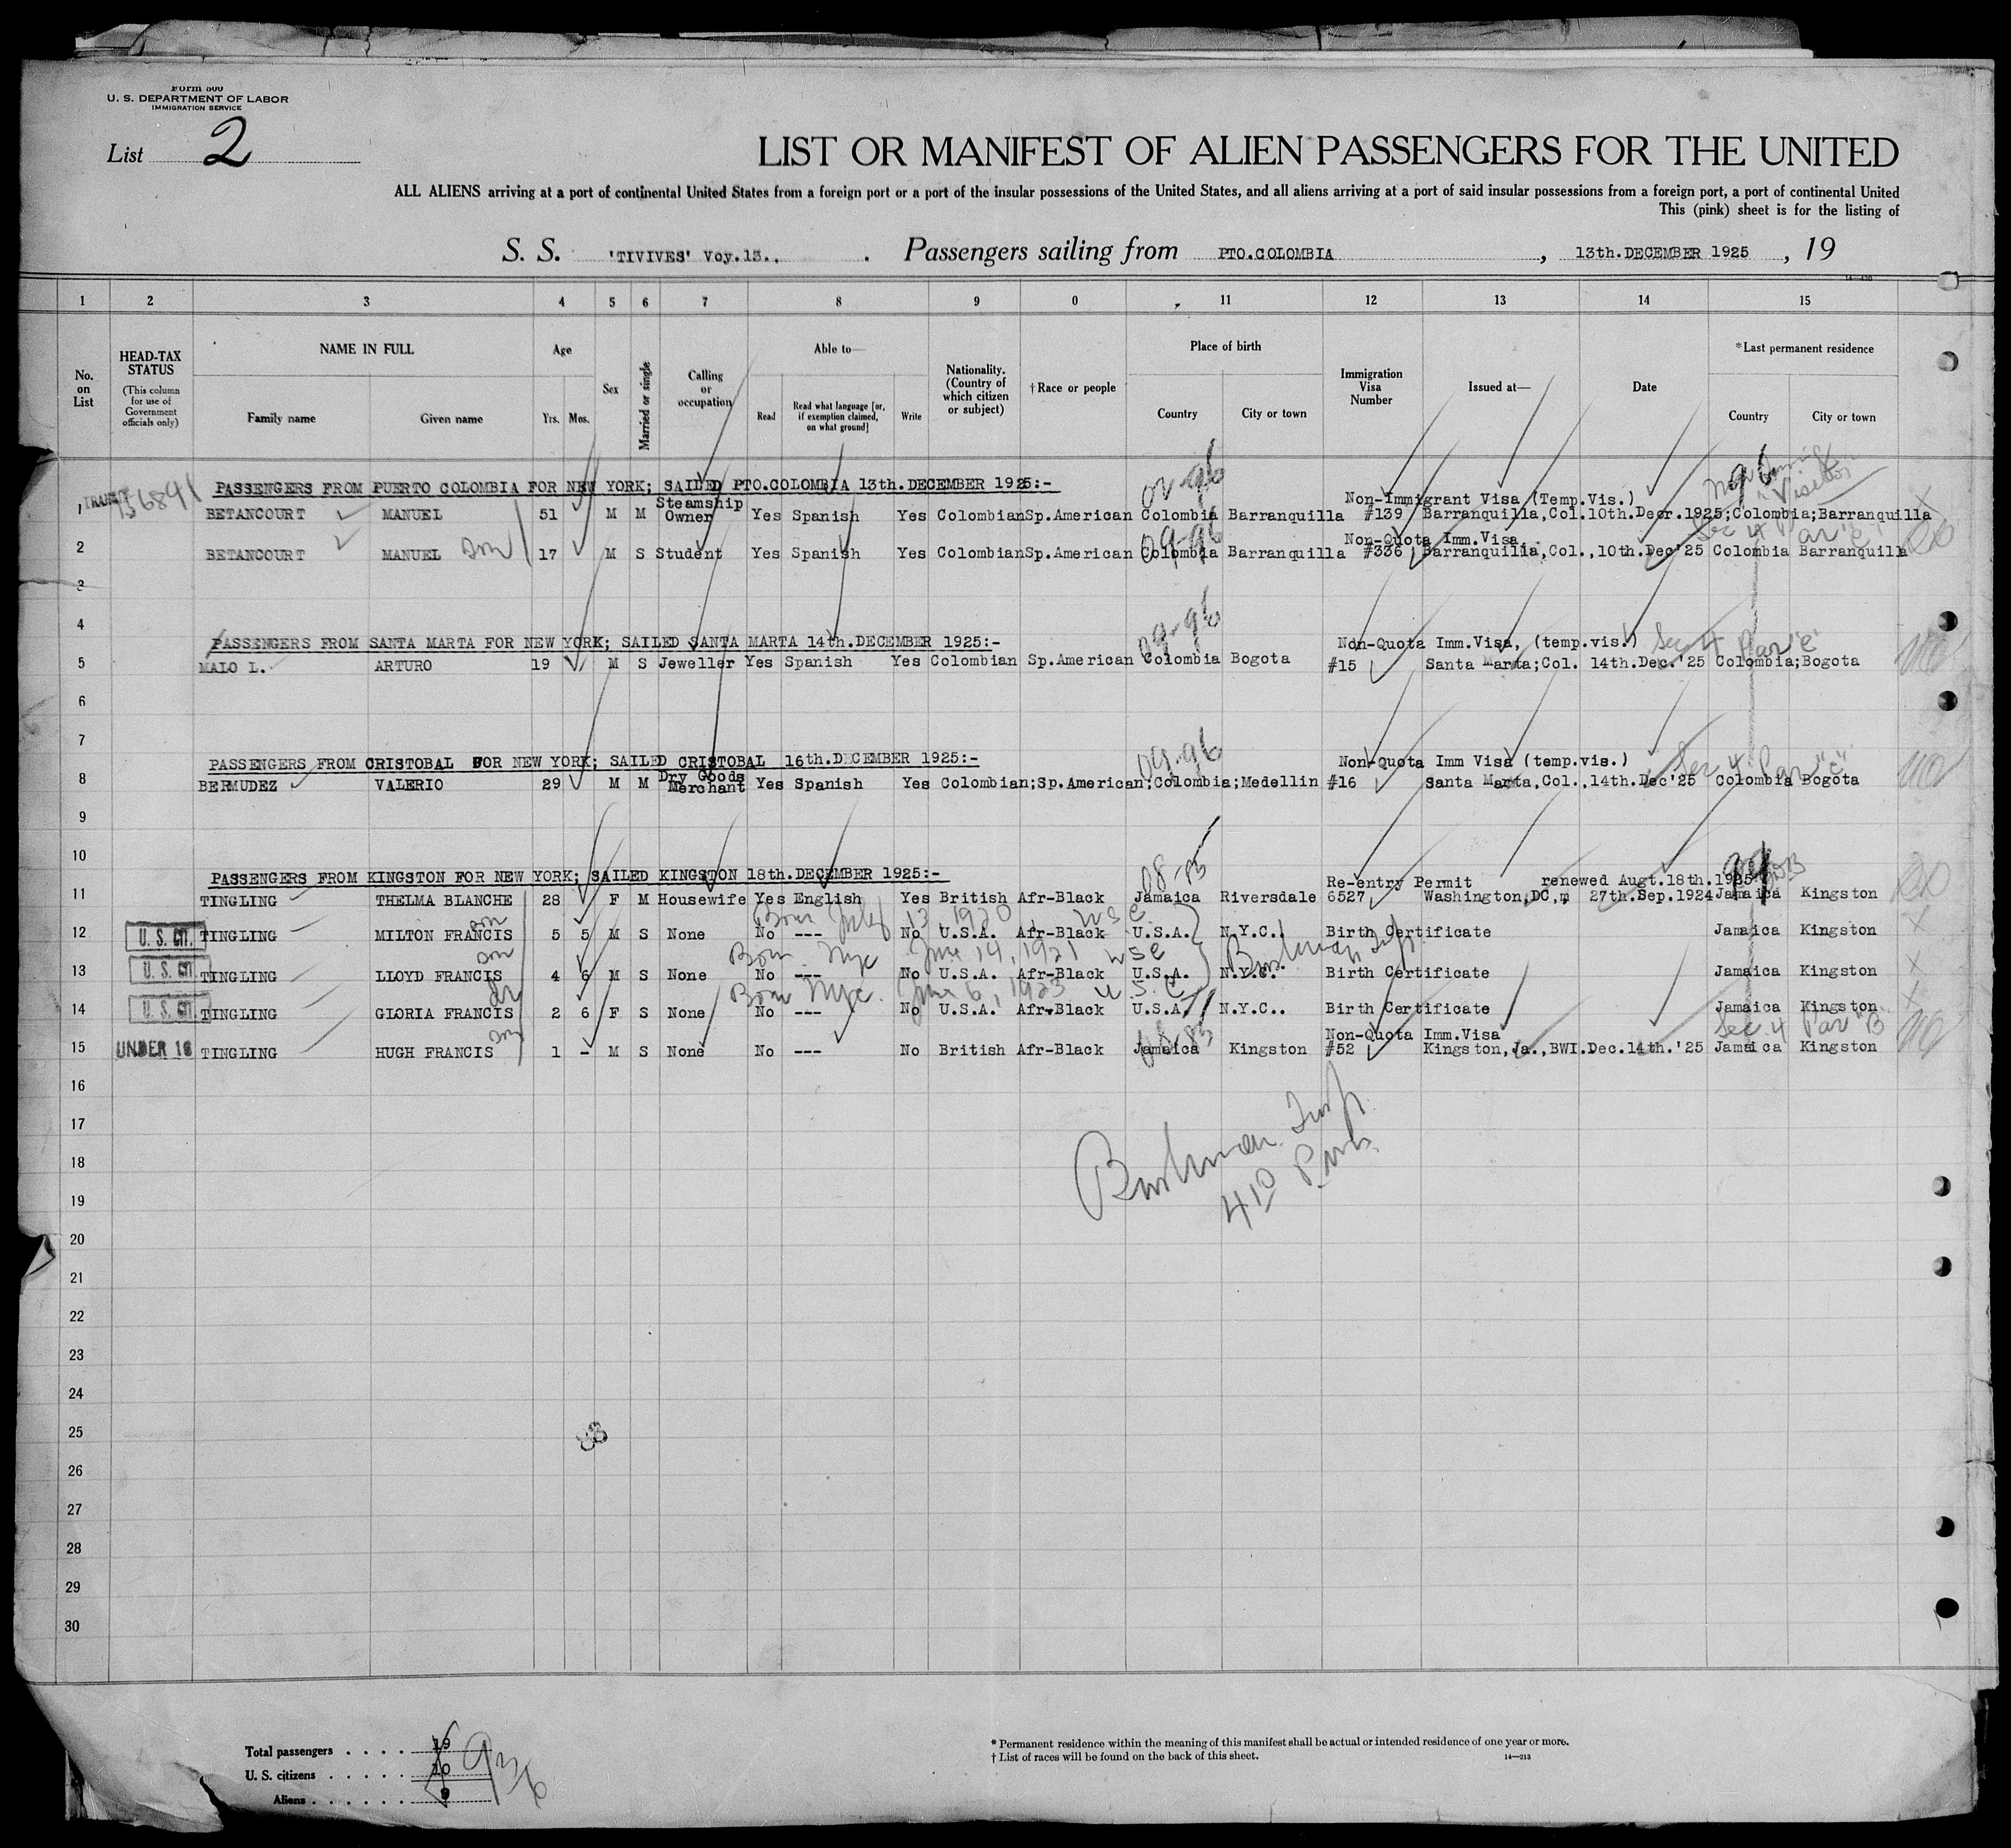 Form 500
U. S. DEPARTMENT OF LABOR
IMMIGRATION SERVICE
List 2
LIST OR MANIFEST OF ALIEN PASSENGERS FOR THE UNITED
ALL ALIENS arriving at a port of continental United States from a foreign port or a port of the insular possessions of the United States, and all aliens arriving at a port of said insular possessions from a foreign port, a port of continental United
This (pink) sheet is for the listing of
S. S. 'TIVIVES' Voy.13.. Passengers sailing from PTO.COLOMBIA , 13th.DECEMBER 1925 , 19
1 2 3 4 5 6 7 8 9 0 11 12 13 14 15
No. on List
HEAD-TAX STATUS (This column for use of Government officials only)
NAME IN FULL Family name Given name
Age Yrs. Mos.
Sex
Married or single
Calling or occupation
Able to— Read Read what language [or, if exemption claimed, on what ground] Write
Nationality. (Country of which citizen or subject)
†Race or people
Place of birth Country City or town
Immigration Visa Number
Issued at—
Date
*Last permanent residence Country City or town
PASSENGERS FROM PUERTO COLOMBIA FOR NEW YORK; SAILED PTO.COLOMBIA 13th.DECEMBER 1925:-
Non-Immigrant Visa (Temp.Vis.) Visitor
1 TRANSIT BETANCOURT MANUEL 51 M M Steamship Owner Yes Spanish Yes Colombian Sp.American Colombia Barranquilla #139 Barranquilla,Col.10th.Decr.1925;Colombia;Barranquilla
Non-Quota Imm.Visa Sec 4 Par "e"
2 BETANCOURT MANUEL son 17 M S Student Yes Spanish Yes Colombian Sp.American Colombia Barranquilla #336 Barranquilla,Col.,10th.Dec'25 Colombia Barranquilla
3
4
PASSENGERS FROM SANTA MARTA FOR NEW YORK; SAILED SANTA MARTA 14th.DECEMBER 1925:-
09-96 Non-Quota Imm.Visa, (temp.vis.) Sec 4 Par "e"
5 MALO L. ARTURO 19 M S Jeweller Yes Spanish Yes Colombian Sp.American Colombia Bogota #15 Santa Marta;Col. 14th.Dec.'25 Colombia;Bogota
6
7
PASSENGERS FROM CRISTOBAL FOR NEW YORK; SAILED CRISTOBAL 16th.DECEMBER 1925:-
09-96 Non-Quota Imm Visa (temp.vis.) Sec 4 Par "e"
8 BERMUDEZ VALERIO 29 M M Dry Goods Merchant Yes Spanish Yes Colombian;Sp.American;Colombia;Medellin #16 Santa Marta,Col.,14th.Dec'25 Colombia Bogota
9
10
PASSENGERS FROM KINGSTON FOR NEW YORK; SAILED KINGSTON 18th.DECEMBER 1925:-
Re-entry Permit renewed Augt.18th.1925
11 TINGLING THELMA BLANCHE 28 F M Housewife Yes English Yes British Afr-Black Jamaica Riversdale 6527 Washington,DC, 27th.Sep.1924 Jamaica Kingston
son Born July 13, 1920 USC
12 U. S. CIT. TINGLING MILTON FRANCIS 5 5 M S None No --- No U.S.A. Afr-Black U.S.A. N.Y.C. Birth Certificate Jamaica Kingston
son Born NYC June 14, 1921 USC
13 U. S. CIT. TINGLING LLOYD FRANCIS 4 6 M S None No --- No U.S.A. Afr-Black U.S.A. N.Y.C. Birth Certificate Jamaica Kingston
Born NYC. June 6, 1923 U S C
14 U. S. CIT. TINGLING GLORIA FRANCIS 2 6 F S None No --- No U.S.A. Afr-Black U.S.A. N.Y.C.. Birth Certificate Jamaica Kingston
son Non-Quota Imm.Visa Sec 4 Par "B"
15 UNDER 16 TINGLING HUGH FRANCIS 1 - M S None No --- No British Afr-Black Jamaica Kingston #52 Kingston,Ja.,BWI.Dec.14th.'25 Jamaica Kingston
16
17
18
19
20
21
22
23
24
25
26
27
28
29
30
Total passengers . . . . 19
U. S. citizens . . . . . 10
Aliens . . . . . . 9
* Permanent residence within the meaning of this manifest shall be actual or intended residence of one year or more.
† List of races will be found on the back of this sheet. 14—213